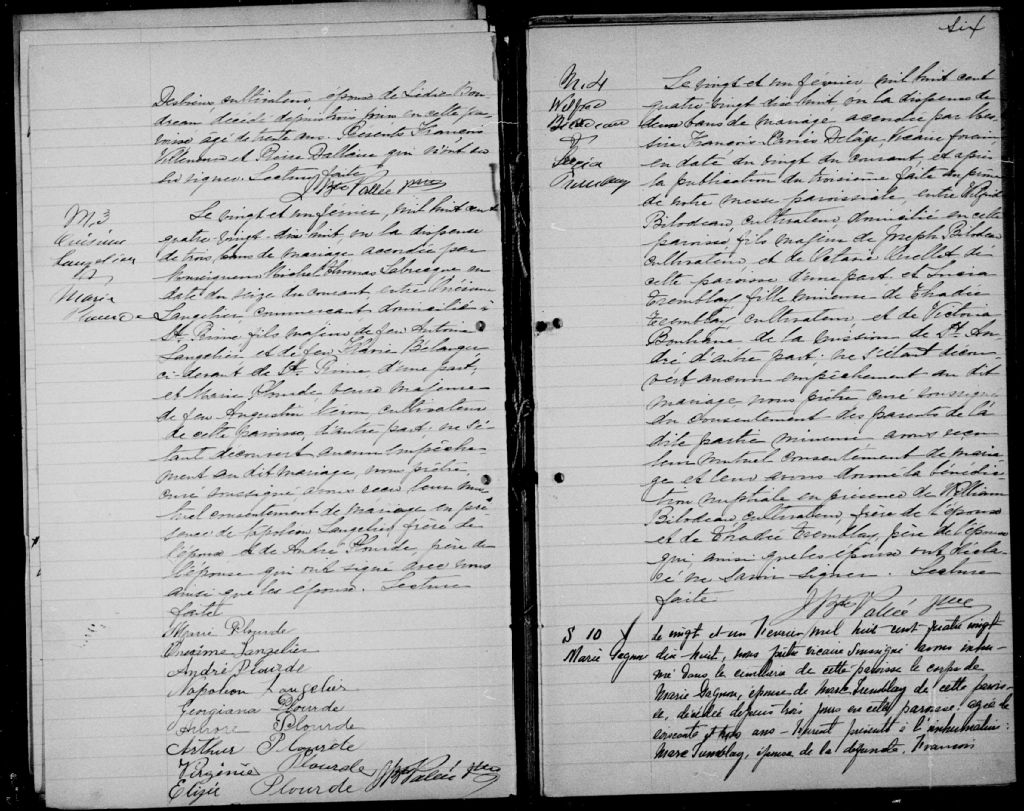 Desbiens cultivateur époux de Lédia Bou
dreau décédé depuis trois jours en cette pa
roisse âgé de trente ans. Présents François
Villeneuve et Pierre Dallaire qui n'ont su
signer. Lecture faite
Jbte Vallée Ptre
M. 3
Onésime
Langelier
&
Marie
Plourde
Le vingt et un février, mil huit cent
quatre vingt dix huit, vu la dispense
de trois bans de mariage accordée par
Monseigneur Michel Thomas Labrecque en
date du seize du courant, entre Onésime
Langelier commerçant domicilié à
St. Prime fils majeur de feu Antoine
Langelier et de feu Marie Belanger
ci-devant de St. Prime d'une part,
et Marie Plourde, veuve majeure
de feu Augustin cultivateur
de cette paroisse, d'autre part: ne s'é-
tant découvert aucun empêche-
ment au dit mariage, nous prêtre
curé soussigné avons reçu leur mu-
tuel consentement de mariage en pré-
sence de Napoléon Langelier, frère de
l'époux & de André Plourde, père de
l'épouse qui ont signé avec nous
ainsi que les époux. Lecture
faite
Marie Plourde
Onésime Langelier
André Plourde
Napoléon Langelier
Georgiana Plourde
Aurore Plourde
Arthur Plourde
Virginie Plourde
Elizée Plourde Jbte Vallée Ptre
Six
M. 4
Wilfrid
Bilodeau
&
Lucia
Tremblay
Le vingt et un février, mil huit cent
quatre vingt dix huit, vu la dispense de
deux bans de mariage accordée par Mes-
sire François-Xavier Delâge, Vicaire forain
en date du vingt du courant, et après
la publication du troisième faite au prône
de notre messe paroissiale, entre Wilfrid
Bilodeau, cultivateur domicilié en cette
paroisse, fils majeur de Joseph Bilodeau
cultivateur et de Ouellet de
cette paroisse d'une part et Lucia
Tremblay fille mineure de Thadée
Tremblay cultivateur et de Victoria
Bouliane de la mission de St. An-
dré d'autre part: ne s'étant décou-
vert aucun empêchement au dit
mariage, nous prêtre curé soussigné
du consentement des parents de la
dite partie mineure avons reçu
leur mutuel consentement de maria-
ge et leur avons donné la bénédic-
tion nuptiale en présence de William
Bilodeau, cultivateur, frère de l'époux
et de Thadée Tremblay, père de l'épouse
qui ainsi que les époux ont décla-
ré ne savoir signer. Lecture
faite
Jbte Vallée Ptre
S 10
Marie Gagnon
Le vingt et un Février mil huit cent quatre vingt
dix-huit, nous prêtre vicaire soussigné avons inhu-
mé dans le cimetière de cette paroisse le corps de
Marie Gagnon, épouse de Marc Tremblay de cette parois-
se, décédée depuis trois jours en cette paroisse, agée de
ans. Furent présents à l'inhumation:
Marc Tremblay, époux de la défunte,